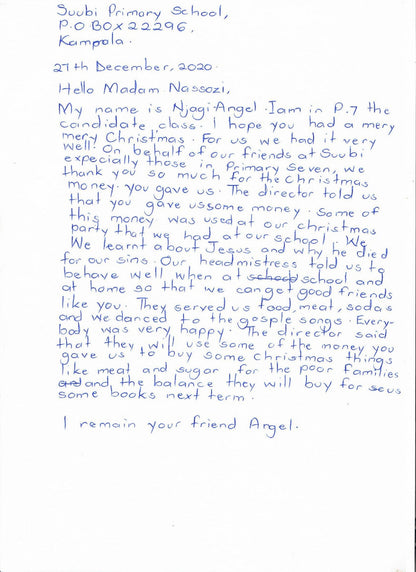 Suubi Primary School,
P.O BOX 22296,
Kampala.
27th December, 2020.
Hello Madam Nassozi,
My name is Njagi Angel. Iam in P.7 the
candidate class. I hope you had a mery
mery Christmas. For us we had it very
well. On behalf of our friends at Suubi
expecially those in Primary Seven, we
thank you so much for the Christmas
money you gave us. The director told us
that you gave ussome money. Some of
this money was used at our christmas
party that we had at our school. We
We learnt about Jesus and why he died
for our sins. Our headmistress told us to
behave well when at school school and
at home so that we canget good friends
like you. They served us food, meat, sodas
and we danced to the gosple songs. Every-
body was very happy. The director said
that they will use some of the money you
gave us to buy some Christmas things
like meat and sugar for the poor families
and and the balance they will buy for us
some books next term.
I remain your friend Angel.